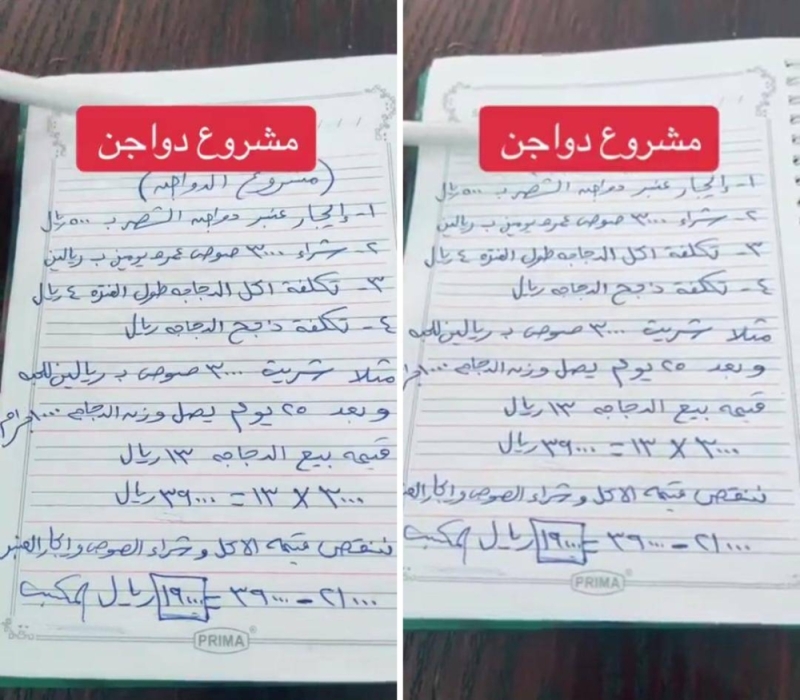 مشروع دواجن
(مشروع الدواجن)
١- إيجار عنبر دواجن الشهر ب ٥٠٠ ريال
٢- شراء ٣٠٠٠ صوص عمره يومين ب ريالين
٣- تكلفة اكل الدجاجه طول الفتره ٤ ريال
٤- تكلفة ذبح الدجاجه ريال
مثلا شريت ٣٠٠٠ صوص ب ريالين للحبه
وبعد ٢٥ يوم يصل وزن الدجاجه ١٠٠٠ جرام
قيمه بيع الدجاجه ١٣ ريال
٣٠٠٠ X ١٣ = ٣٩٠٠٠ ريال
ننقص قيمه الاكل وشراء الصوص وايجار العنبر
٢١٠٠٠ - ٣٩٠٠٠ = ١٩٠٠٠ ريال المكسب
PRIMA
مشروع دواجن
١- إيجار عنبر دواجن الشهر ب ٥٠٠ ريال
٢- شراء ٣٠٠٠ صوص عمره يومين ب ريالين
٣- تكلفة اكل الدجاجه طول الفتره ٤ ريال
٤- تكلفة ذبح الدجاجه ريال
مثلا شريت ٣٠٠٠ صوص ب ريالين للحبه
وبعد ٢٥ يوم يصل وزن الدجاجه ١٠٠٠
قيمه بيع الدجاجه ١٣ ريال
٣٠٠٠ X ١٣ = ٣٩٠٠٠ ريال
ننقص قيمه الاكل وشراء الصوص وايجار
٢١٠٠٠ - ٣٩٠٠٠ = ١٩٠٠٠ ريال المكسب
PRIMA